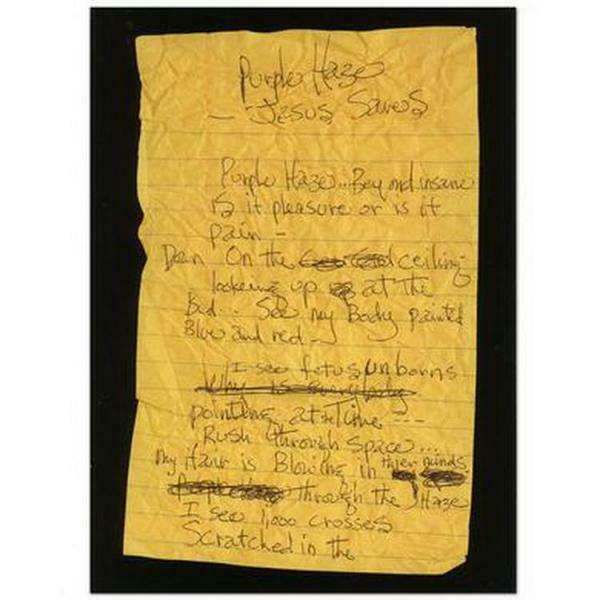 Purple Haze
- Jesus Saves
Purple Haze... Beyond insane
is it pleasure or is it
pain -
Down On the ceiling
looking up at The
Bed... See my Body painted
Blue and red -
I see fetus unborns
Why is everybody
pointing at me
Rush through space...
My Hair is Blowing in thier minds
through the Haze
I see 1,000 crosses
Scratched in the